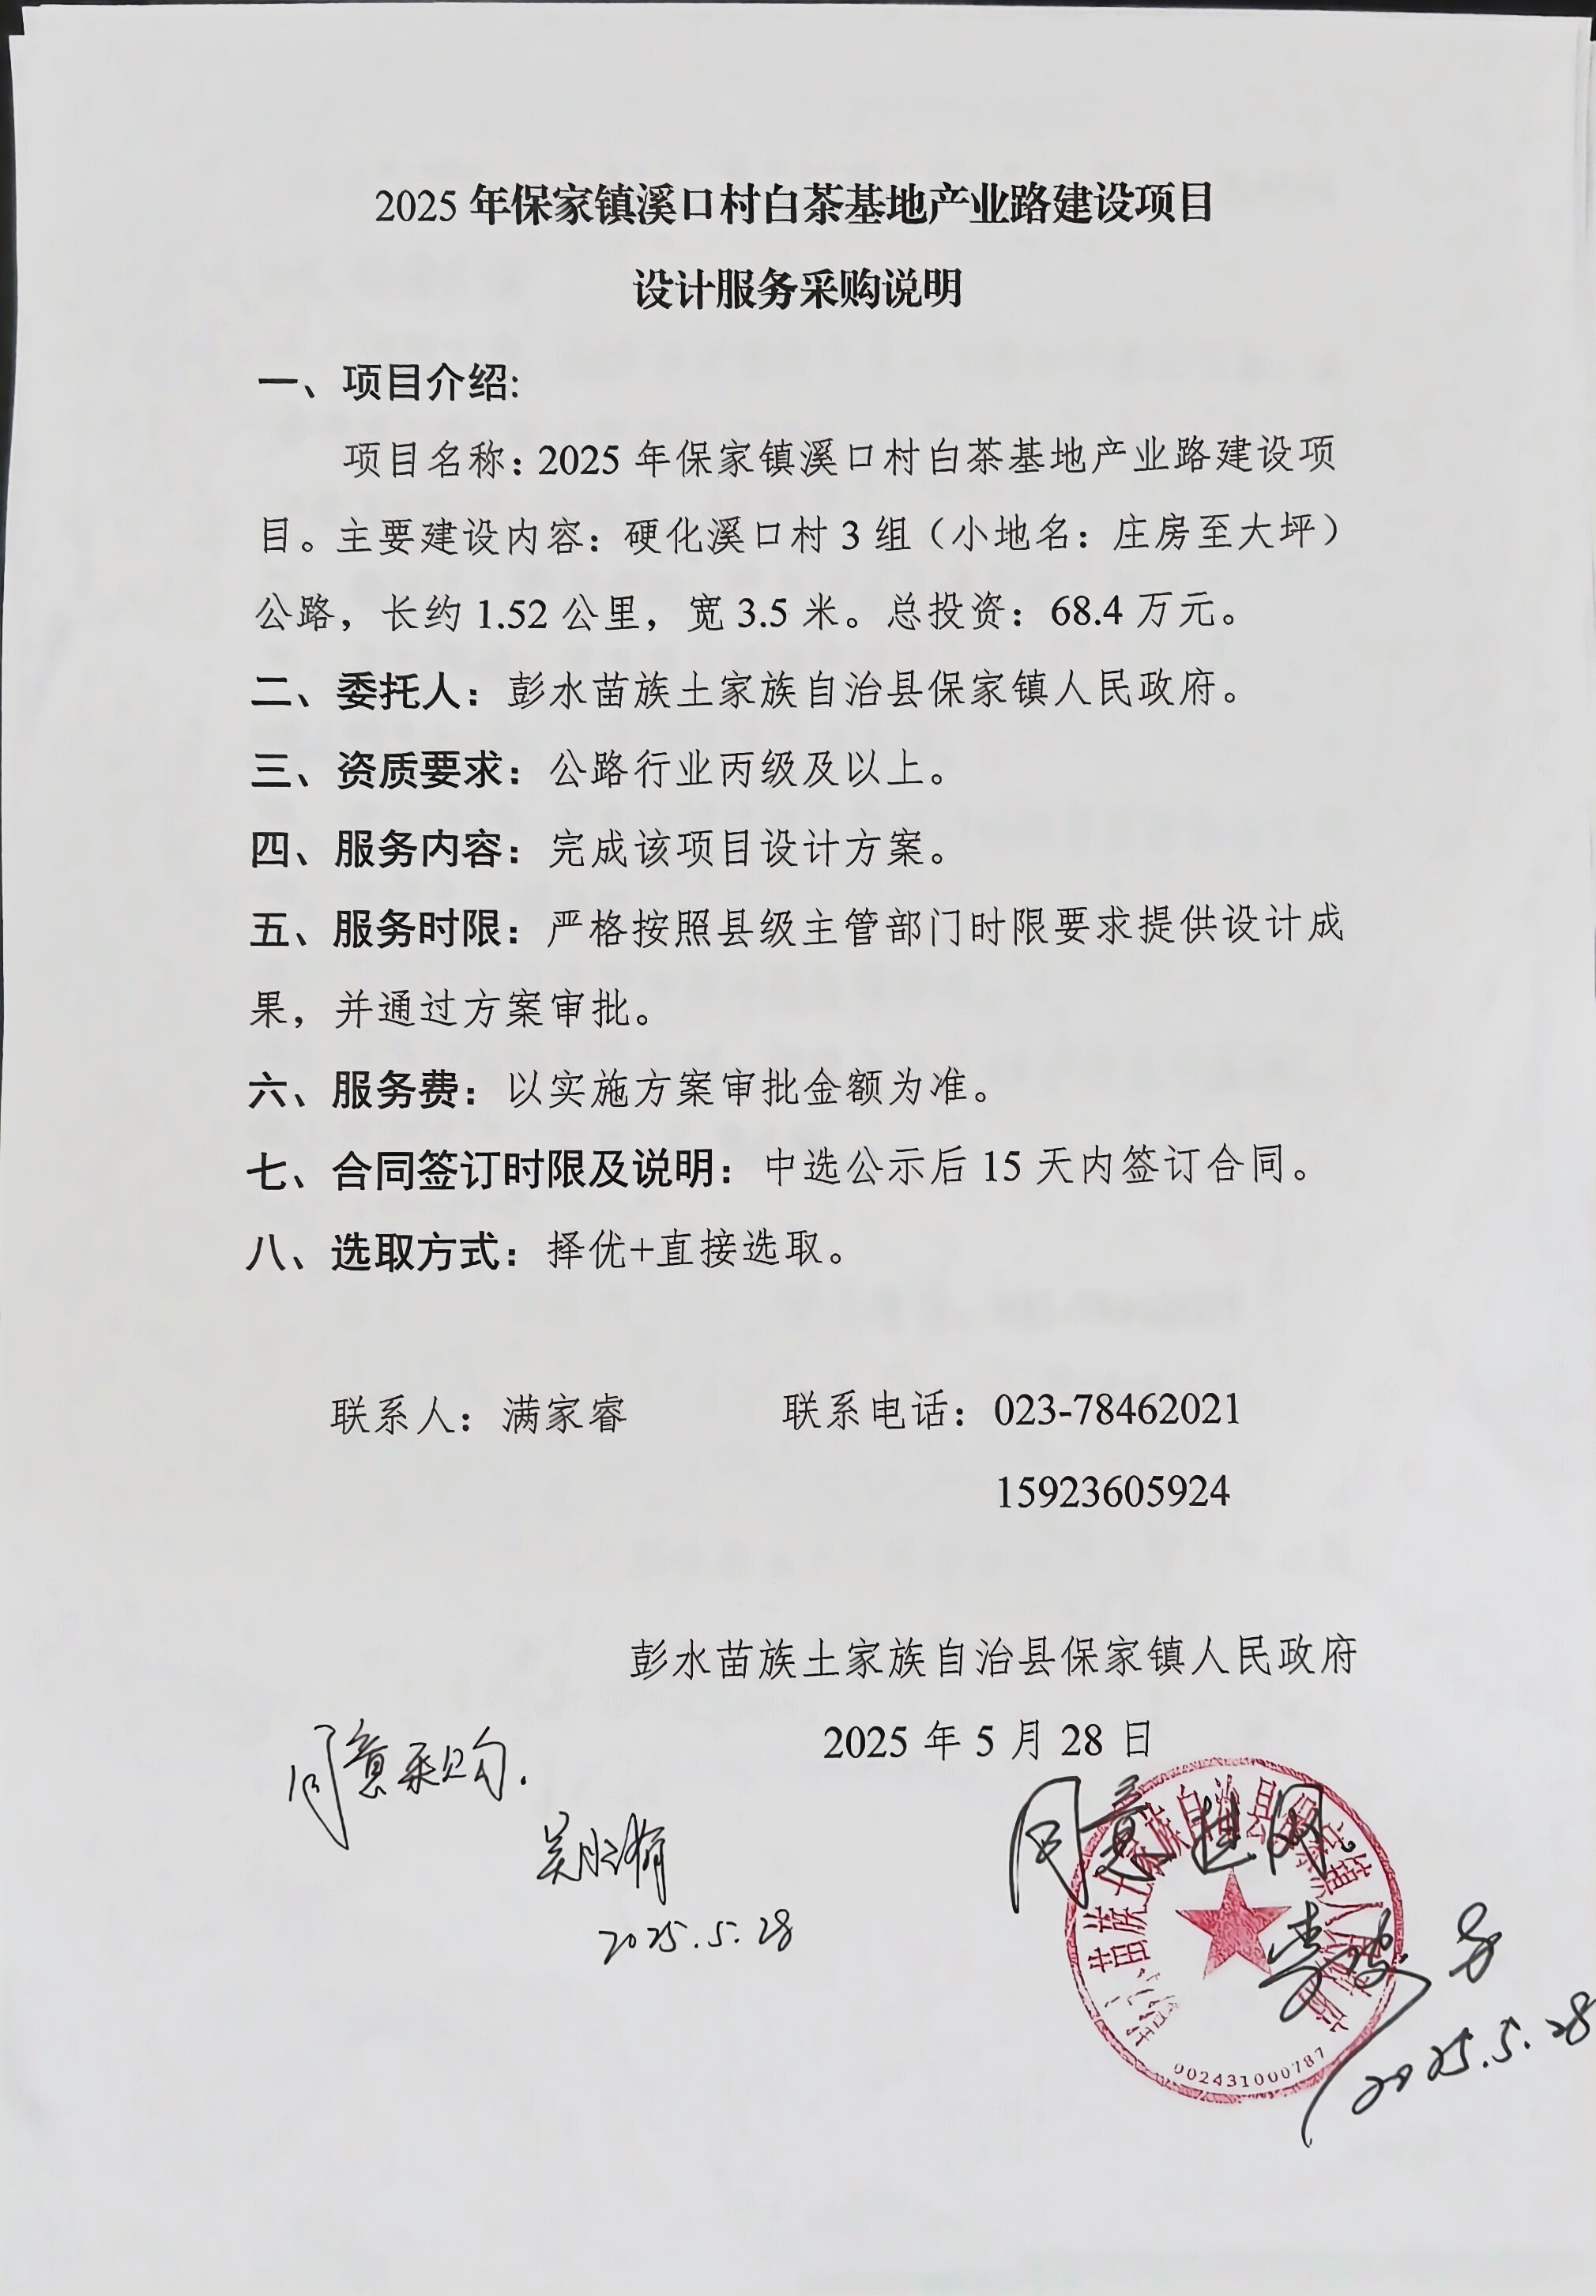 2025 年保家镇溪口村白茶基地产业路建设项目
设计服务采购说明
一、项目介绍:
项目名称：2025 年保家镇溪口村白茶基地产业路建设项
目。主要建设内容：硬化溪口村 3 组（小地名：庄房至大坪）
公路，长约 1.52 公里，宽 3.5 米。总投资：68.4 万元。
二、委托人：彭水苗族土家族自治县保家镇人民政府。
三、资质要求：公路行业丙级及以上。
四、服务内容：完成该项目设计方案。
五、服务时限：严格按照县级主管部门时限要求提供设计成
果，并通过方案审批。
六、服务费：以实施方案审批金额为准。
七、合同签订时限及说明：中选公示后 15 天内签订合同。
八、选取方式：择优+直接选取。
联系人：满家睿 联系电话：023-78462021
15923605924
彭水苗族土家族自治县保家镇人民政府
2025 年 5 月 28 日
同意采购.
2025.5.28
同意挂网.
2025.5.28
彭水苗族土家族自治县保家镇人民政府
002431000787